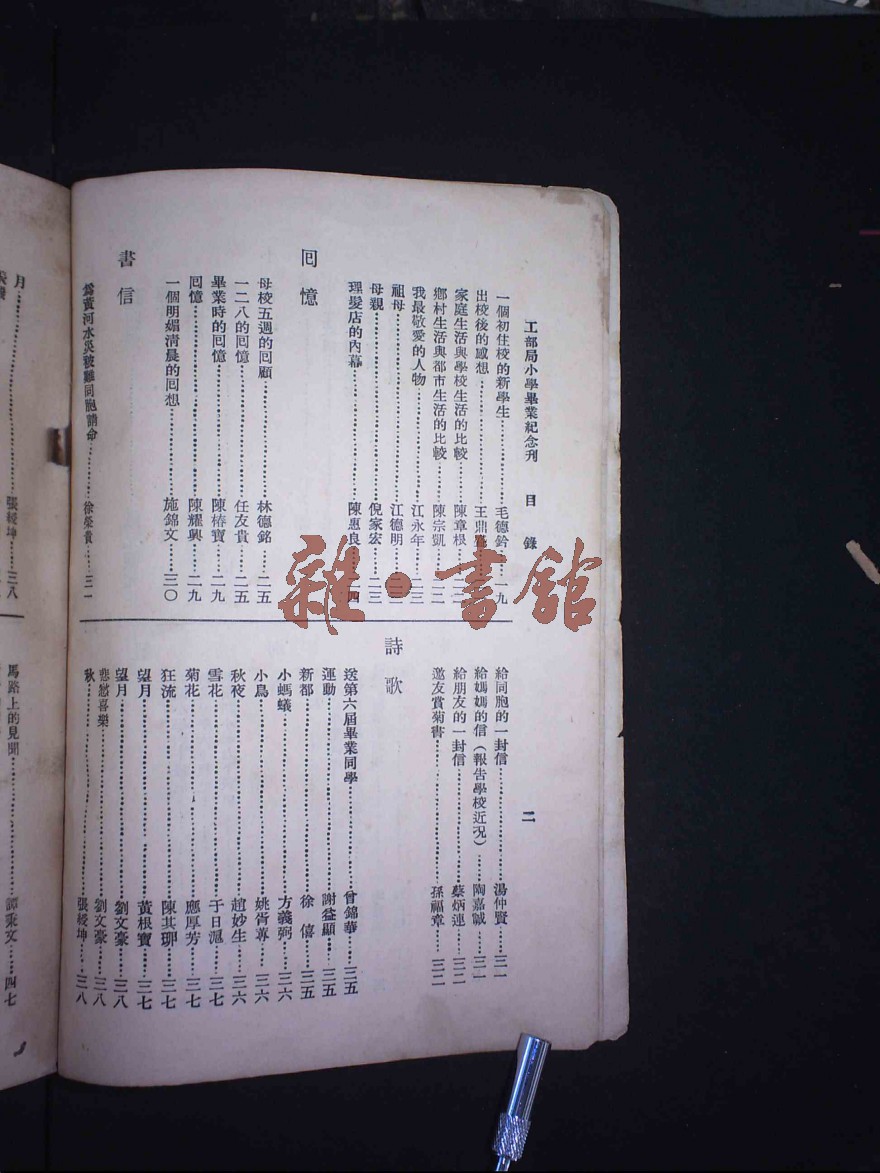 工部局小學畢業紀念刊 目錄 二
一個初住校的新學生 毛德鈐 九
出校後的感想 王鼎
家庭生活與學校生活的比較 陳章根 二
鄉村生活與都市生活的比較 陳宗凱 二二
我最敬愛的人物 江永年 二三
祖母 江德明
母親 倪家宏 二三
理髮店的內幕 陳惠良 四
回憶
母校五週的囘顧 林德銘 二五
一二八的囘憶 任友貴 二五
畢業時的囘憶 陳椿寶 二九
囘憶 陳耀興 二九
一個明媚清晨的囘想 施錦文 三〇
書信
為黃河水災被難同胞請命 徐榮貴 三一
給同胞的一封信 湯仲賢 三一
給媽媽的信(報告學校近況) 陶嘉誠 三一
給朋友的一封信 蔡炳連 三二
邀友賞菊書 孫福章 三二
詩歌
送第六屆畢業同學 曾錦華 三五
運動 謝益顯 三五
新都 徐僖 三五
小螞蟻 方義弼 三六
小鳥 姚胥蓴 三六
秋夜 趙妙生 三六
雪花 于日滬 三七
菊花 應厚芳 三七
狂流 陳其琊 三七
望月 黃根寶 三七
望月 劉文豪 三八
悲愁喜樂 劉文豪 三八
秋 張綬坤 三八
月 張綬坤 三八
馬路上的見聞 譚秉文 四七
雜·書館